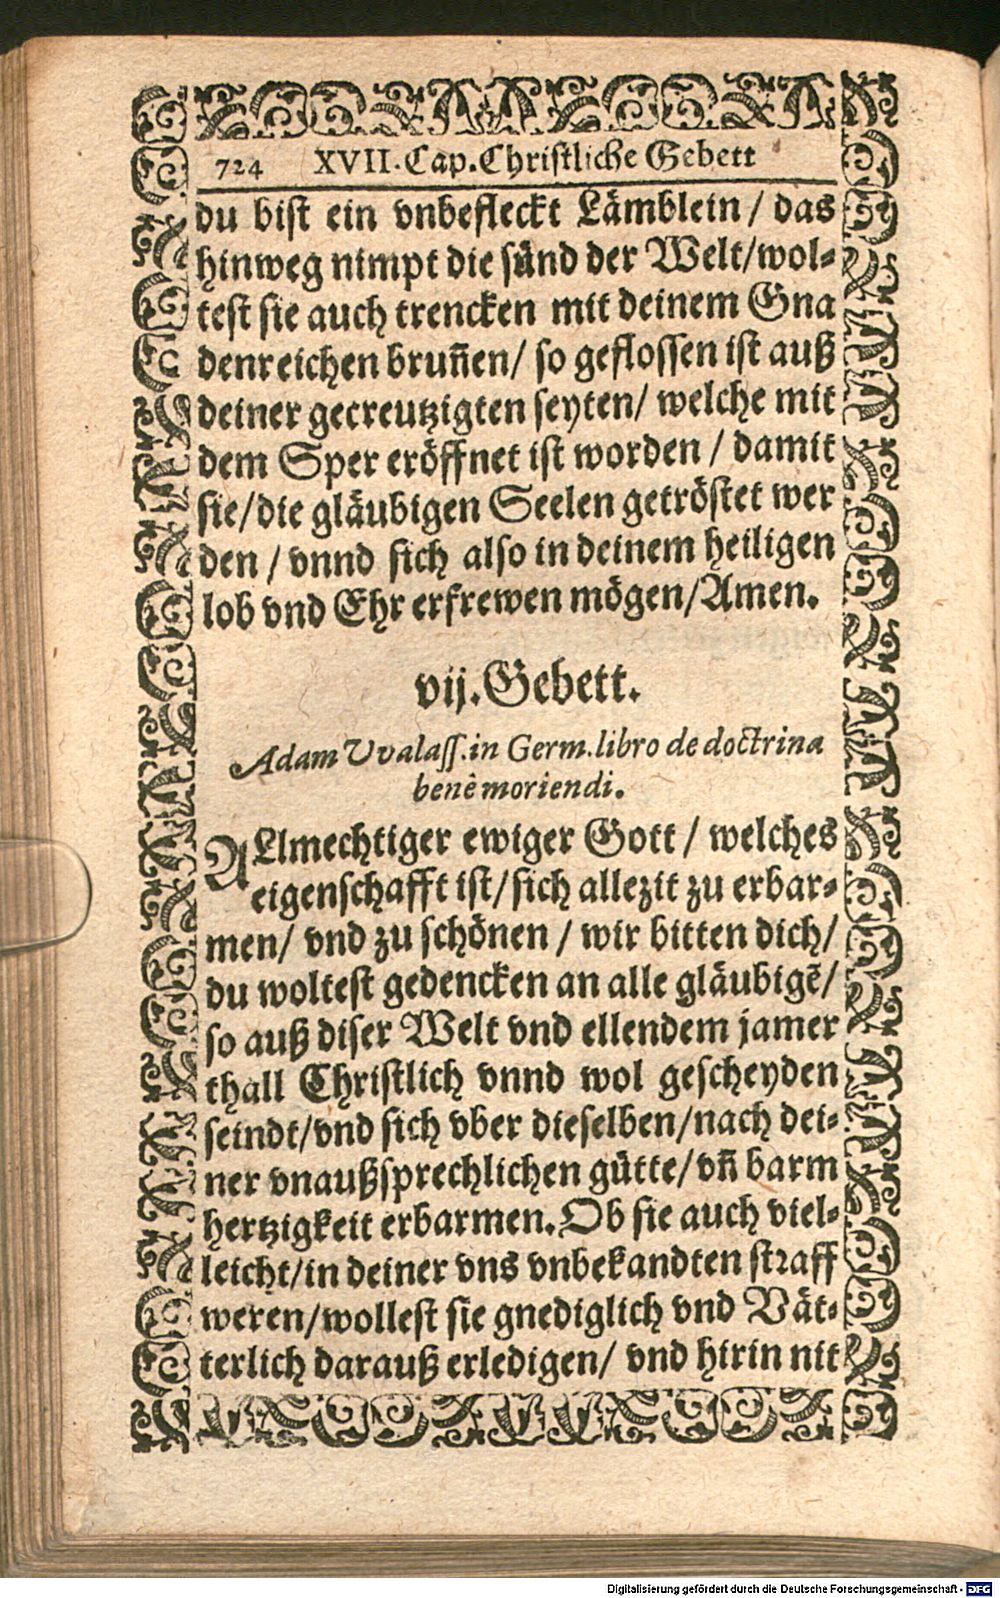 724 XVII. Cap. Christliche Gebett
du bist ein vnbefleckt Lämblein / das
hinweg nimpt die sünd der Welt/wol-
test sie auch trencken mit deinem Gna
denreichen bruñen/ so geflossen ist auß
deiner gecreutzigten seyten/ welche mit
dem Sper eröffnet ist worden / damit
sie/die gläubigen Seelen getröstet wer
den / vnnd sich also in deinem heiligen
lob vnd Ehr erfrewen mögen/Amen.
vij. Gebett.
Adam Vvalass. in Germ. libro de doctrina
benè moriendi.
ALlmechtiger ewiger Gott / welches
eigenschafft ist/sich allezit zu erbar-
men/ vnd zu schönen / wir bitten dich/
du woltest gedencken an alle gläubigẽ/
so auß diser Welt vnd ellendem jamer
thall Christlich vnnd wol gescheyden
seindt/vnd sich vber dieselben/nach dei-
ner vnaußsprechlichen gütte/vñ barm
hertzigkeit erbarmen. Ob sie auch viel-
leicht/in deiner vns vnbekandten straff
weren/wollest sie gnediglich vnd Vät-
terlich darauß erledigen/ vnd hirin nit
Digitalisierung gefördert durch die Deutsche Forschungsgemeinschaft - DFG